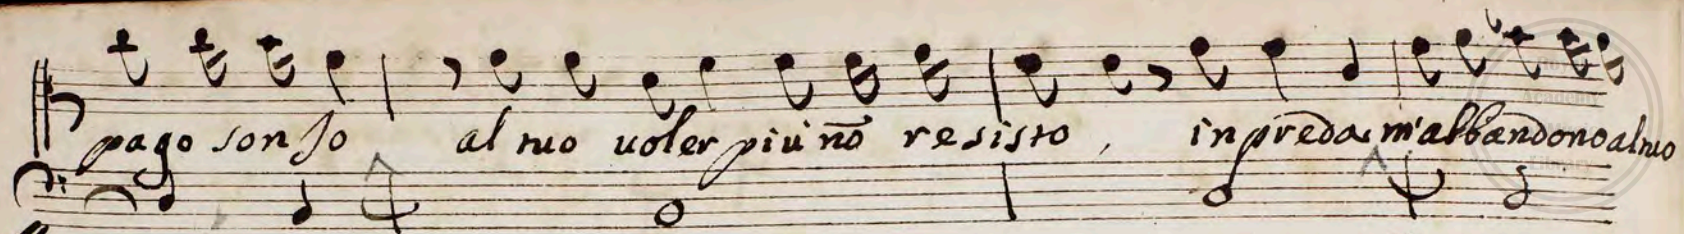 pago son Io al tuo uoler piu nō resisto, in preda m'abbandono al tuo